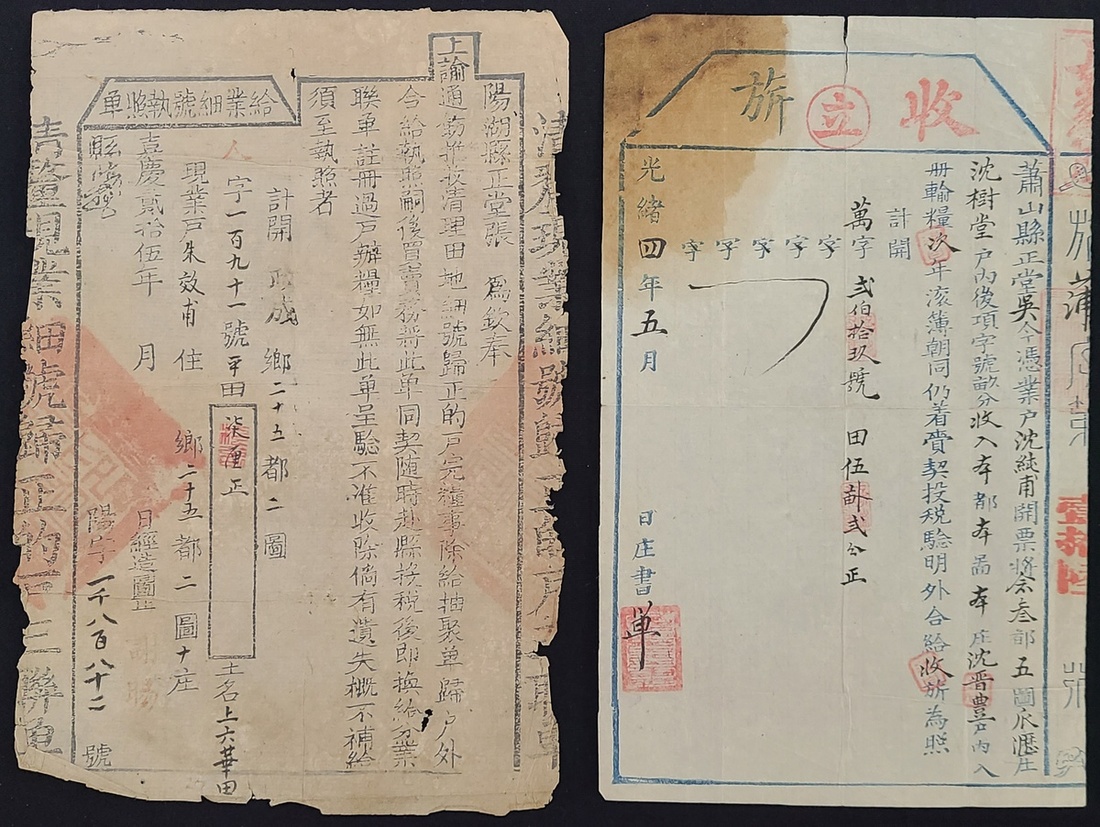 給業細號執照單
上諭通飭推收清理田地細號歸正的戶完糧事除給抽聚單歸戶外
陽湖縣正堂張 為欽奉
合給執照嗣後買賣務將此單同契隨時赴縣投稅後即換給分業
聯單註冊過戶辦糧如無此單呈驗不准收除倘有遺失概不補給
須至執照者
計開 鄉二十五都二圖
人字一百九十一號平田 正 土名上六華田
現業戶朱效甫住 鄉二十五都二圖十庄
嘉慶貳拾伍年 月 日經造圖正
縣 陽字一千八百八十二號
清釐現業細號歸正的戶三聯
收立旂
蕭山縣正堂吳今憑業戶沈純甫開票將念叁都五圖庄
沈樹堂戶內後項字號畝分收入本都本啚本庄沈晋豊戶內入
冊輸糧次年滚簿朝同仍着賫契投税驗明外合給收旂為照
計開
萬字弍伯拾玖號 田伍畝弍分正
字
字
字
字
字
光緒四年五月 日庄書單